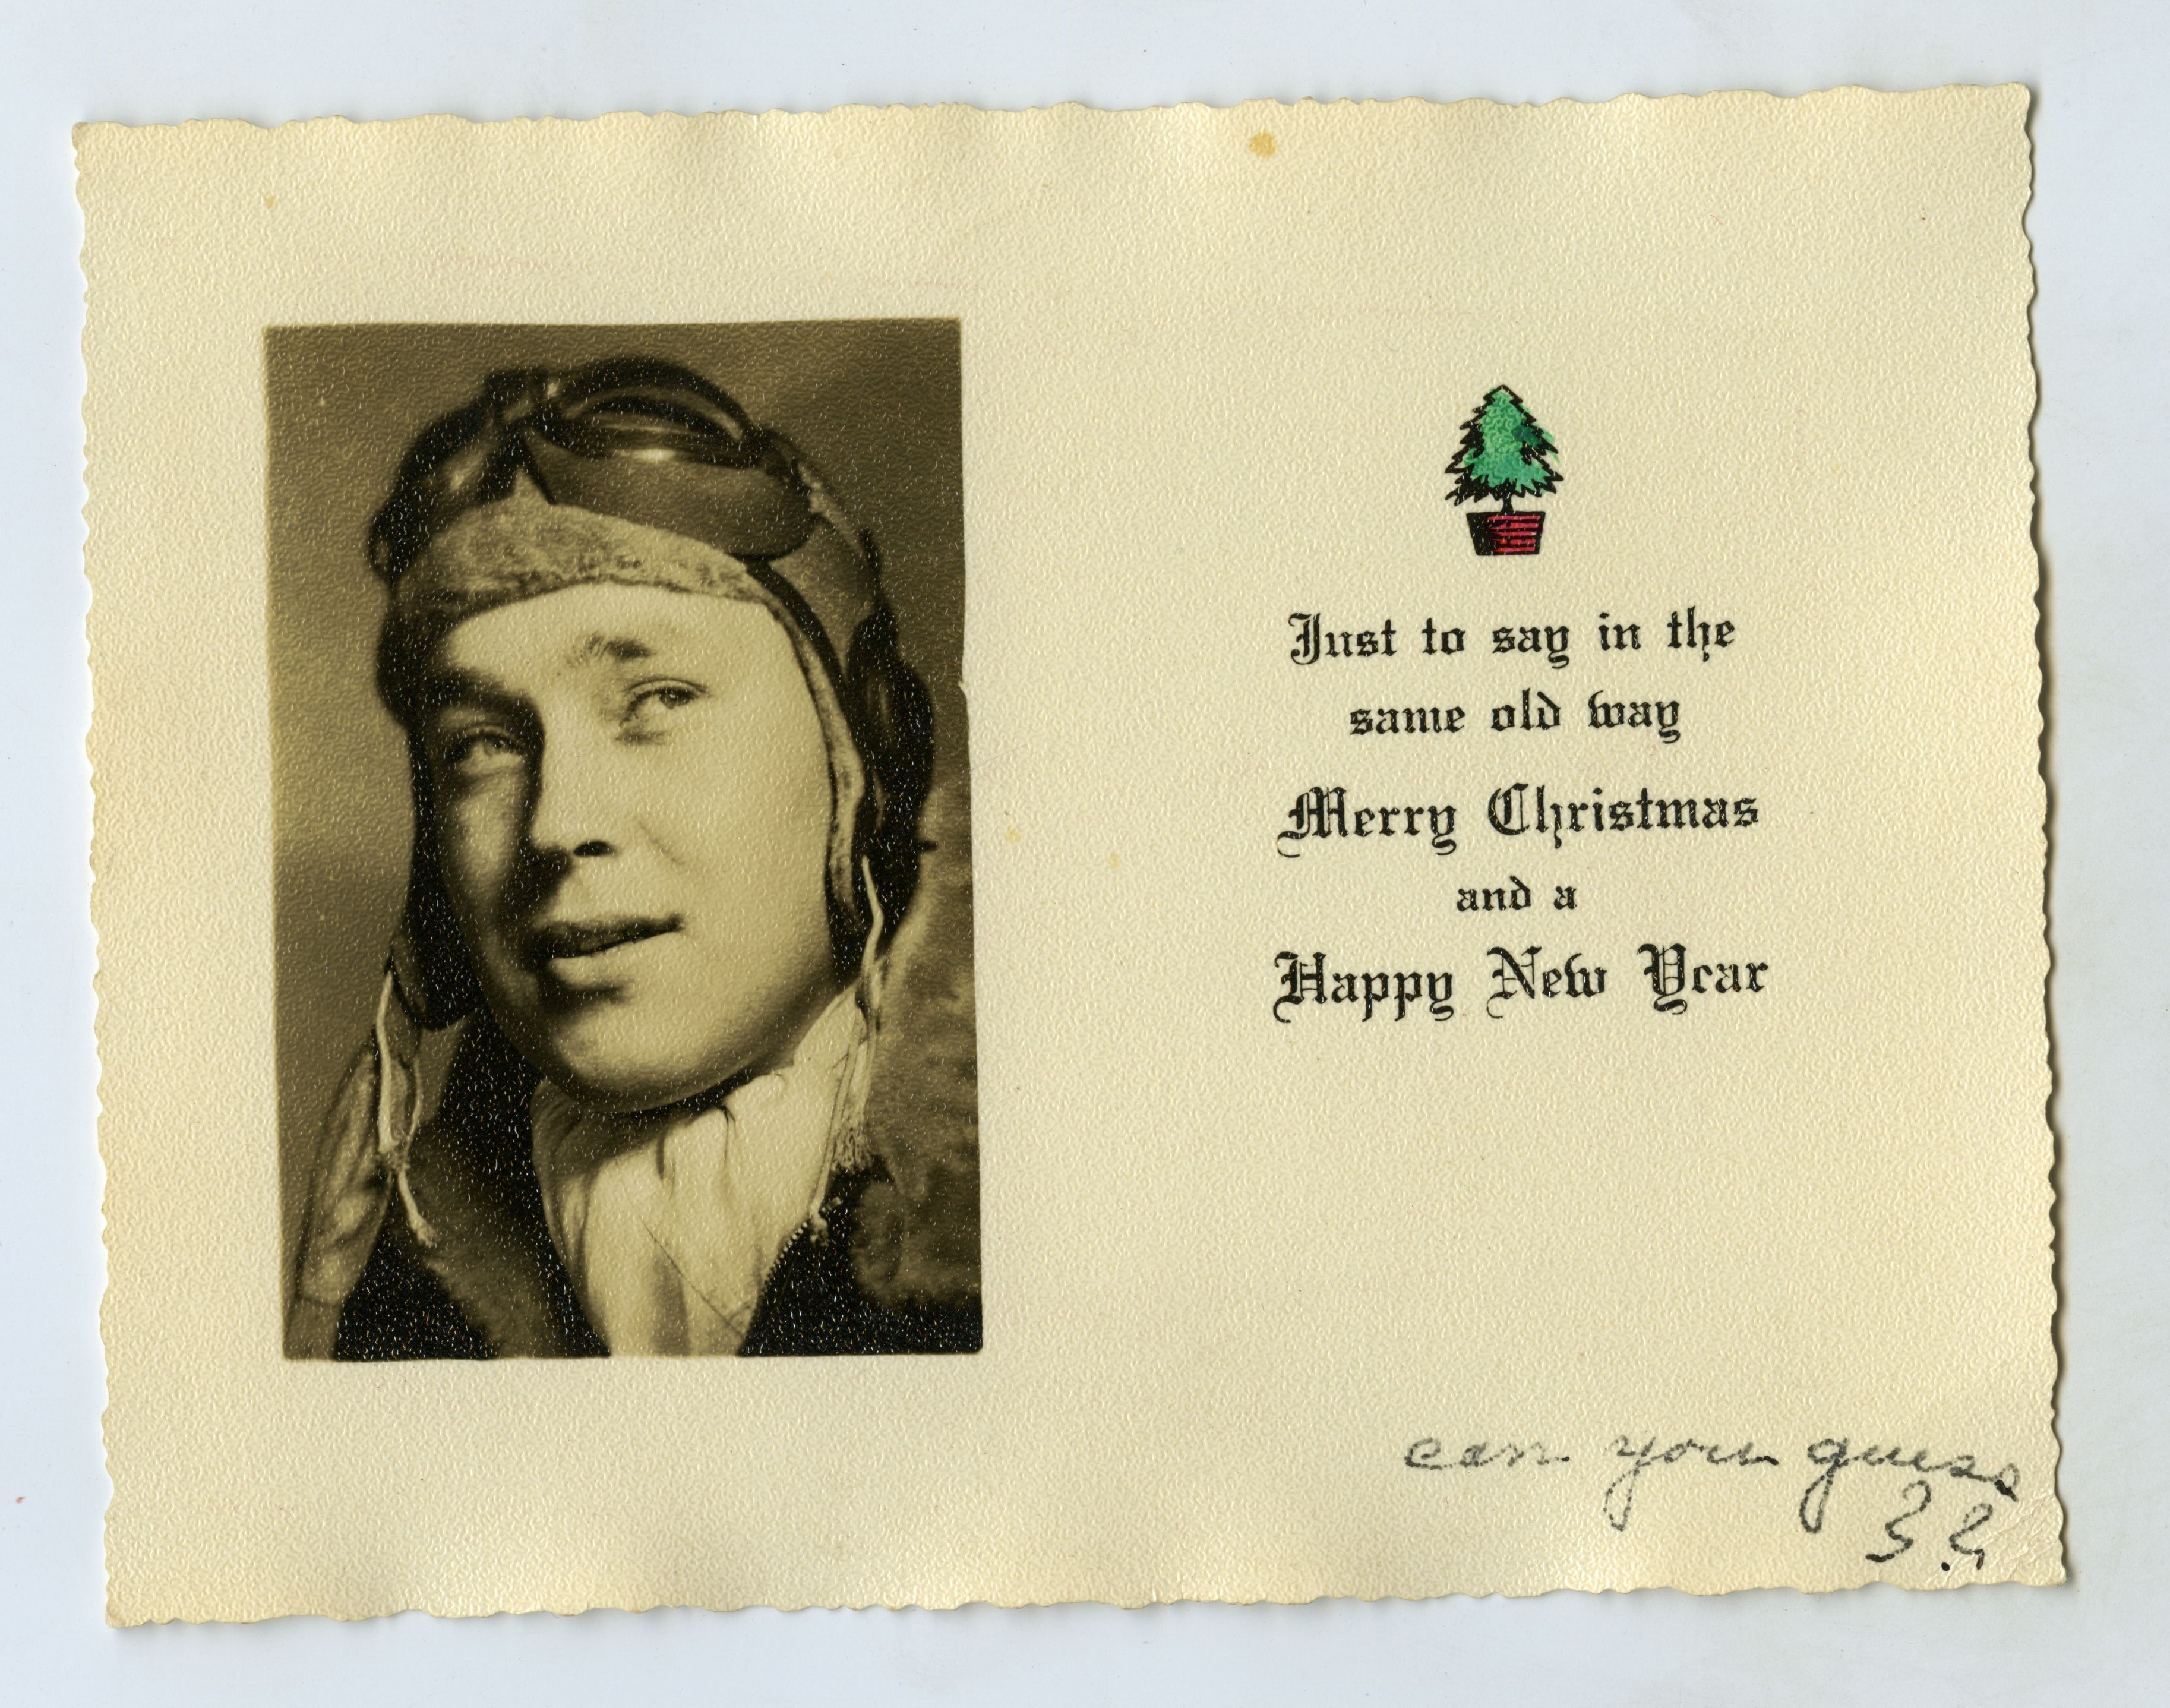 Just to say in the
same old way
Merry Christmas
and a
Happy New Year
can you guess
??